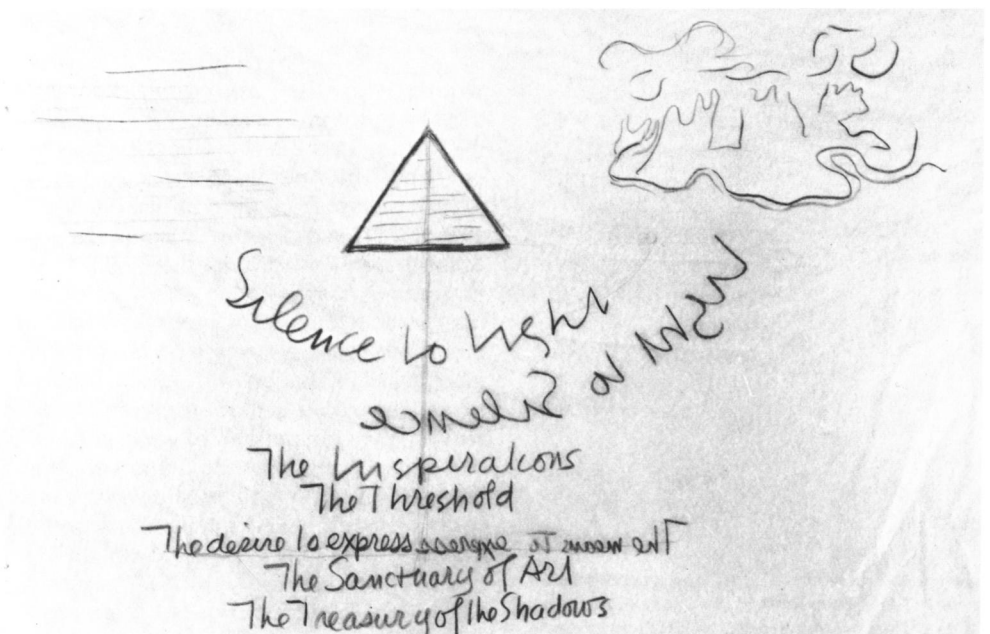 Silence to Light
Light to Silence
The Inspirations
The Threshold
The desire to express The means to express
The Sanctuary of Art
The Treasury of the Shadows